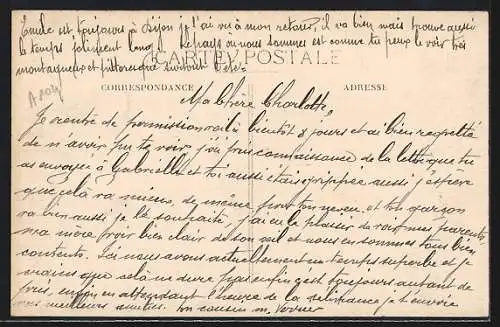 Emile est toujours à Dijon je l'ai vu à mon retour, il va bien mais trouve aussi
le temps joliment long. Le pays où nous sommes est comme tu peux le voir très
montagneux et pittoresque surtout l'été.
CARTE POSTALE
CORRESPONDANCE
ADRESSE
Ma Chère Charlotte,
Je rentre de permission voilà bientôt 8 jours et ai bien regretté
de n'avoir pu te voir, j'ai pris connaissance de la lettre que tu
as envoyée à Gabrielle et toi aussi étais grippée aussi j'espère
que celà va mieux, de même pour ton neveu, et ton garçon
va bien aussi je le souhaite, j'ai eu le plaisir de voir mes parents,
ma mère voir bien clair de son œil et nous en sommes tous bien
contents. Ici nous avons actuellement un temps superbe et je
crains que celà ne dure pas enfin c'est toujours autant de
pris, enfin en attendant l'heure de la délivrance je t'envoie
mes meilleures amitiés. ton cousin